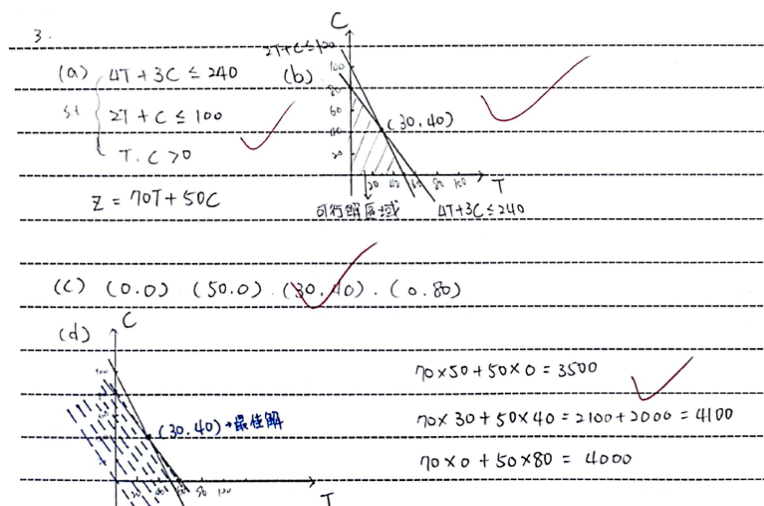 3.
(a) 4T+3C ≤ 240
st 2T+C ≤ 100
T.C >0
Z = 70T+50C
(b)
C
2T+C ≤ 100
100
80
60
40
20
(30.40)
20 40 60 80 100 T
可行解區域
4T+3C ≤ 240
(c) (0.0) (50.0) (30.40). (0.80)
(d)
C
(30.40)→最佳解
20 40 60 80 100
T
70×50+50×0 = 3500
70×30+50×40 = 2100+2000 = 4100
70×0+50×80 = 4000